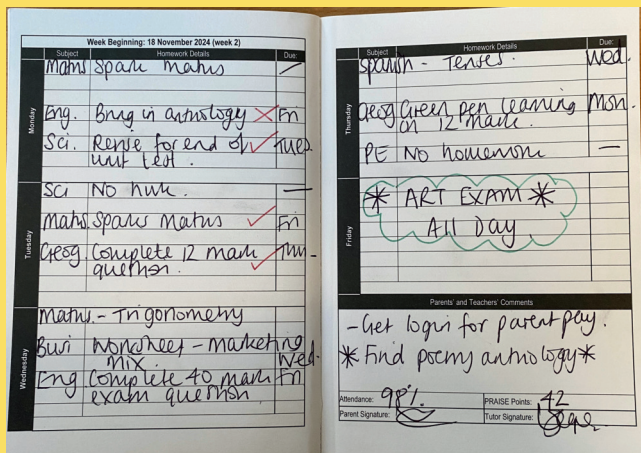 Week Beginning: 18 November 2024 (week 2)
Subject Homework Details Due:
Monday
Maths Spark Maths
Eng. Bring in anthology Fri
Sci. Revise for end of Tues.
unit test.
Tuesday
Sci No hwk.
Maths Sparks Maths Fri
Geog. Complete 12 mark Thu-
question.
Wednesday
Maths. - Trigonometry
Busi Worksheet - marketing
mix. Wed.
Eng Complete 40 mark Fri
exam question
Subject Homework Details Due:
Thursday
Spanish - Tenses. Wed.
Geog Green pen learning Mon.
on 12 mark.
PE No homework
Friday
ART EXAM
All Day
Parents' and Teachers' Comments
- Get login for parent pay.
* Find poems anthology *
Attendance: 98% PRAISE Points: 42
Parent Signature: Tutor Signature: